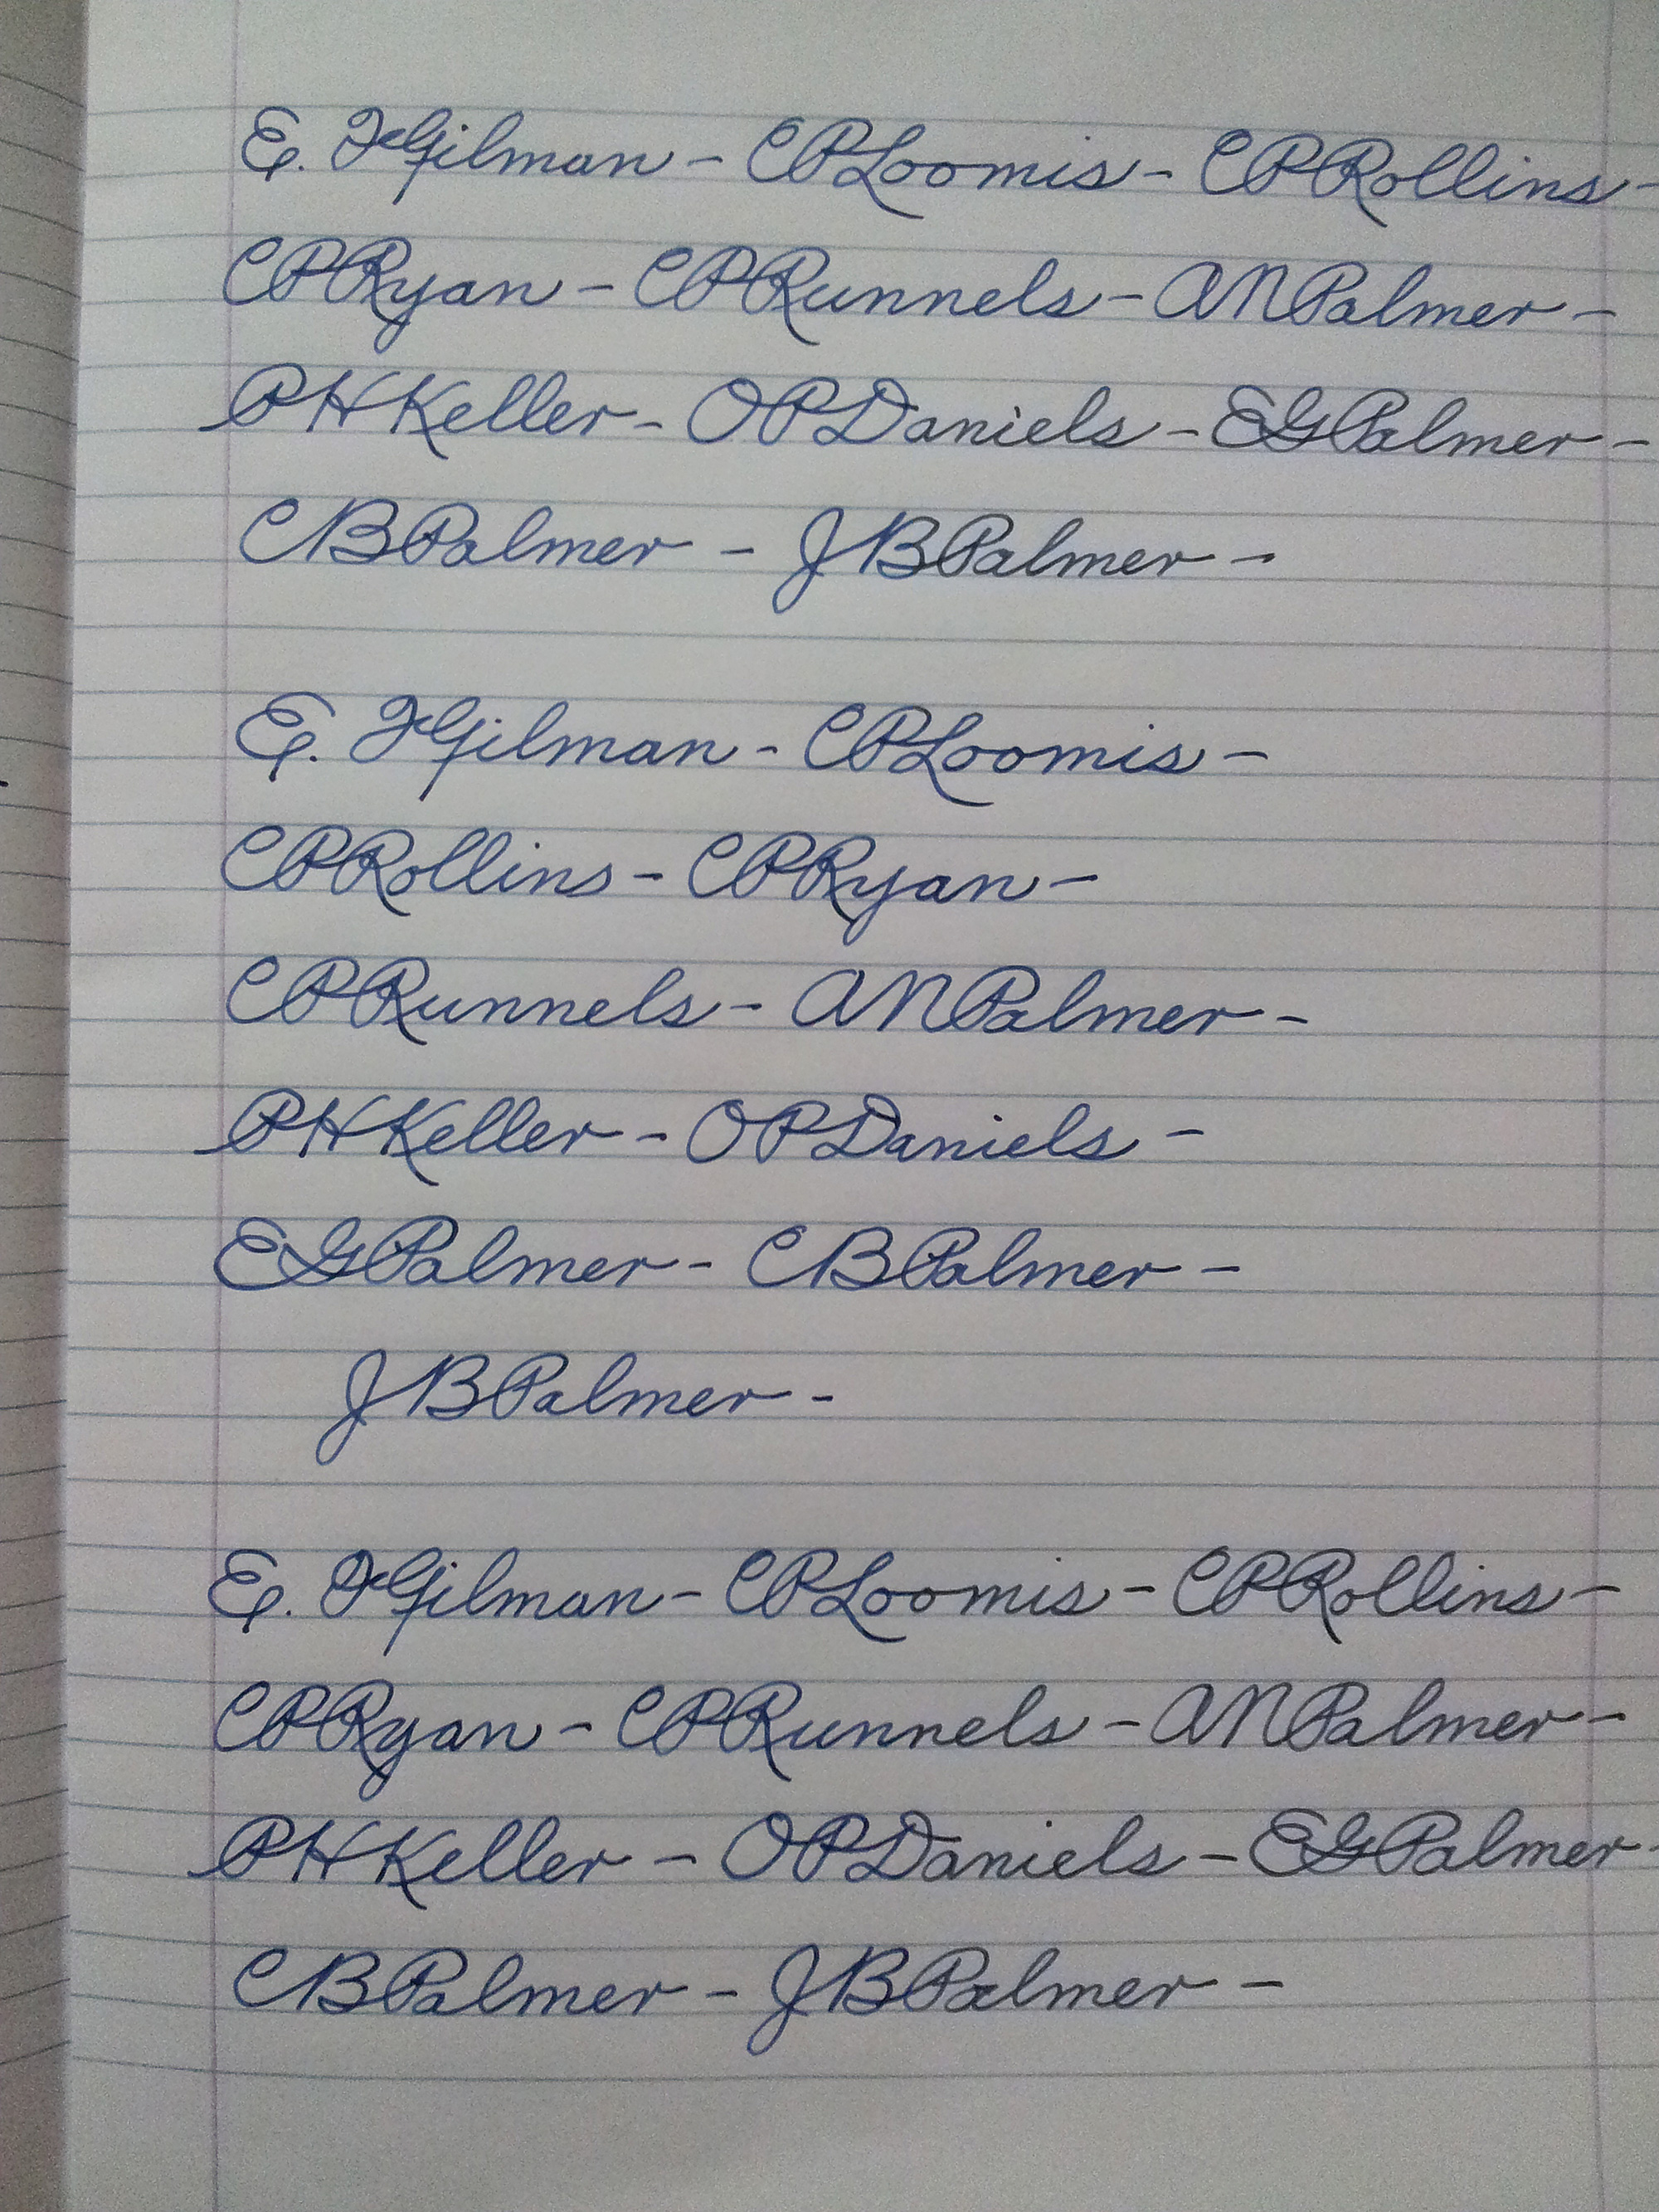 E. F Gilman - C P Loomis - C P Rollins -
C P Ryan - C P Runnels - A N Palmer -
P H Keller - O P Daniels - E G Palmer -
C B Palmer - J B Palmer -
E. F Gilman - C P Loomis -
C P Rollins - C P Ryan -
C P Runnels - A N Palmer -
P H Keller - O P Daniels -
E G Palmer - C B Palmer -
J B Palmer -
E. F Gilman - C P Loomis - C P Rollins -
C P Ryan - C P Runnels - A N Palmer -
P H Keller - O P Daniels - E G Palmer -
C B Palmer - J B Palmer -